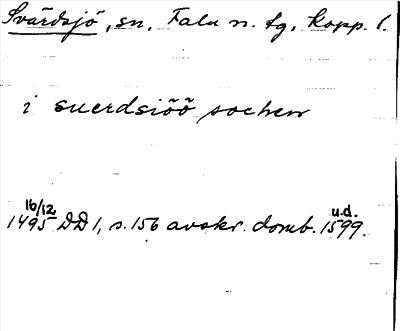 Svärdsjö, sn, Falu n. tg, Kopp. l.
i suerdsiõõ sochen
16/12 u.d.
1495 DD 1, s. 156 avskr. domb. 1599.